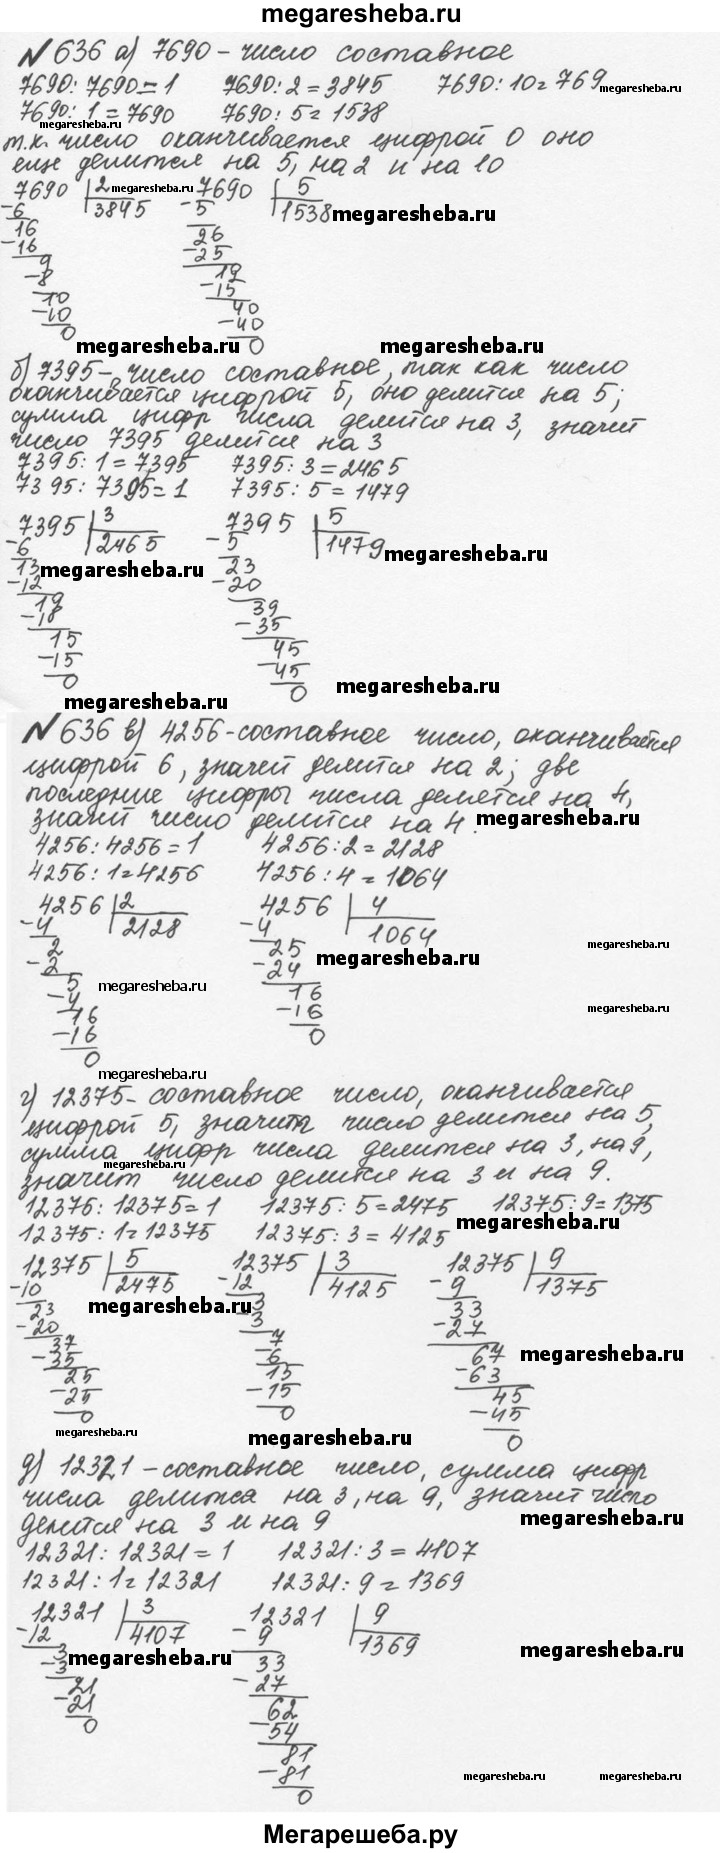 megaresheba.ru
№ 636 а) 7690 – число составное
7690 : 7690 = 1 7690 : 2 = 3845 7690 : 10 = 769
megaresheba.ru
7690 : 1 = 7690 7690 : 5 = 1538
megaresheba.ru
т.к. число оканчивается цифрой 0 оно
еще делится на 5, на 2 и на 10
7690 | 2 megaresheba.ru 7690 | 5
-6 3845 -5 1538 megaresheba.ru
16 26
-16 -25
9 19
-8 -15
10 40
-10 -40
0 0
megaresheba.ru megaresheba.ru
б) 7395 – число составное, так как число
оканчивается цифрой 5, оно делится на 5;
сумма цифр числа делится на 3, значит
число 7395 делится на 3
7395 : 1 = 7395 7395 : 3 = 2465
7395 : 7395 = 1 7395 : 5 = 1479
7395 | 3 7395 | 5
-6 2465 -5 1479 megaresheba.ru
13 megaresheba.ru 23
-12 -20
19 39
-18 -35
15 45
-15 -45
0 0
megaresheba.ru megaresheba.ru
№ 636 в) 4256 – составное число, оканчивается
цифрой 6, значит делится на 2; две
последние цифры числа делятся на 4,
значит число делится на 4. megaresheba.ru
4256 : 4256 = 1 4256 : 2 = 2128
4256 : 1 = 4256 4256 : 4 = 1064
4256 | 2 4256 | 4
-4 2128 -4 1064
2 25 megaresheba.ru
-2 -24 megaresheba.ru
5 megaresheba.ru 16
-4 -16 megaresheba.ru
16 0
-16
0
megaresheba.ru
г) 12375 – составное число, оканчивается
цифрой 5, значит число делится на 5,
сумма цифр числа делится на 3, на 9,
megaresheba.ru
значит число делится на 3 и на 9.
12376 : 12375 = 1 12375 : 5 = 2475 12375 : 9 = 1375
megaresheba.ru
12375 : 1 = 12375 12375 : 3 = 4125
12375 | 5 12375 | 3 12375 | 9
-10 2475 -12 4125 -9 1375
23 megaresheba.ru 3 33
-20 -3 -27
37 7 67 megaresheba.ru
-35 -6 -63
25 15 45
-25 -15 -45
0 0 0
megaresheba.ru megaresheba.ru
д) 12321 – составное число, сумма цифр
числа делится на 3, на 9, значит число
делится на 3 и на 9 megaresheba.ru
12321 : 12321 = 1 12321 : 3 = 4107
12321 : 1 = 12321 12321 : 9 = 1369
12321 | 3 12321 | 9
-12 4107 -9 1369
3 megaresheba.ru 33 megaresheba.ru
-3 -27
21 62
-21 -54
0 81
-81 megaresheba.ru megaresheba.ru
0
Мегарешеба.ру